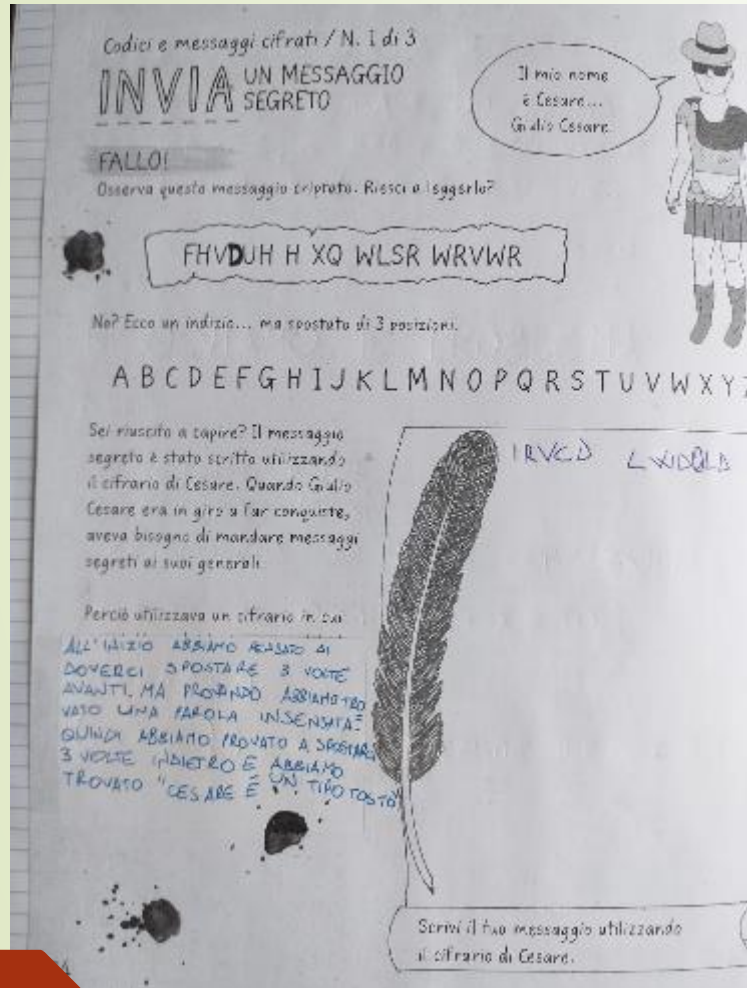 Codici e messaggi cifrati / N. 1 di 3
INVIA UN MESSAGGIO
SEGRETO
Il mio nome
è Cesare...
Giulio Cesare.
FALLO!
Osserva questo messaggio criptato. Riesci a leggerlo?
FHVDUH H XQ WLSR WRVWR
No? Ecco un indizio... ma spostato di 3 posizioni.
A B C D E F G H I J K L M N O P Q R S T U V W X Y Z
Sei riuscito a capire? Il messaggio
segreto è stato scritto utilizzando
il cifrario di Cesare. Quando Giulio
Cesare era in giro a far conquiste,
aveva bisogno di mandare messaggi
segreti ai suoi generali.
Perciò utilizzava un cifrario in cui
ALL'INIZIO ABBIAMO PENSATO DI
DOVERCI SPOSTARE 3 VOLTE
AVANTI. MA PROVANDO ABBIAMO TRO
VATO UNA PAROLA INSENSATA
QUINDI ABBIAMO PROVATO A SPOSTARCI
3 VOLTE INDIETRO E ABBIAMO
TROVATO "CESARE È UN TIPO TOSTO"
Scrivi il tuo messaggio utilizzando
il cifrario di Cesare.